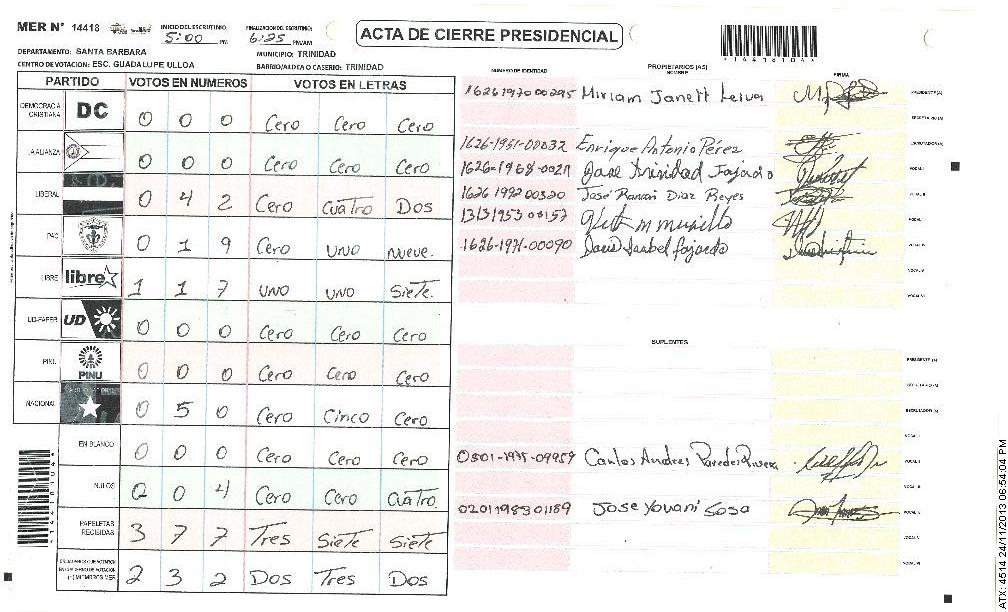 MER N° 14418
INICIO DEL ESCRUTINIO 5:00 PM
FINALIZACION DEL ESCRUTINIO: 6:25 PM/AM
ACTA DE CIERRE PRESIDENCIAL
*14418104*
DEPARTAMENTO: SANTA BARBARA
MUNICIPIO: TRINIDAD
CENTRO DE VOTACION: ESC. GUADALUPE ULLOA
BARRIO/ALDEA O CASERIO: TRINIDAD
PARTIDO VOTOS EN NUMEROS VOTOS EN LETRAS
DEMOCRACIA CRISTIANA DC 0 0 0 Cero Cero Cero
LA ALIANZA 0 0 0 Cero Cero Cero
LIBERAL 0 4 2 Cero Cuatro Dos
PAC 0 1 9 Cero UNO Nueve.
LIBRE libre 1 1 7 UNO UNO Siete.
UD-FAPER UD 0 0 0 Cero Cero Cero
PINU PINU 0 0 0 Cero Cero Cero
NACIONAL 0 5 0 Cero Cinco Cero
EN BLANCO 0 0 0 Cero Cero Cero
NULOS 0 0 4 Cero Cero Cuatro.
PAPELETAS RECIBIDAS 3 7 7 Tres Siete Siete
(+) MIEMBROS MER 2 3 2 Dos Tres Dos
NUMERO DE IDENTIDAD
PROPIETARIOS (AS)
NOMBRE
FIRMA
1626197000295 Miriam Janett Leiva PRESIDENTE (A)
SECRETARIO (A)
1626-1951-00032 Enrique Antonio Pérez ESCRUTADOR (A)
1626-1968-00211 Jose Trinidad Fajardo VOCAL I
1626 1992 00320 José Ramón Diaz Reyes VOCAL II
1313195300157 murillo VOCAL
1626-1971-00090 Isabel fajardo VOCAL IV
VOCAL V
VOCAL VI
SUPLENTES
PRESIDENTE (A)
SECRETARIO (A)
ESCRUTADOR (A)
VOCAL I
0801-1975-09959 Carlos Andres Paredes Rivera VOCAL II
VOCAL III
0201198301189 Jose Yovani Sosa VOCAL IV
VOCAL V
VOCAL VI
*14418104*
ATX: 4514 24/11/2013 06:54:04 PM